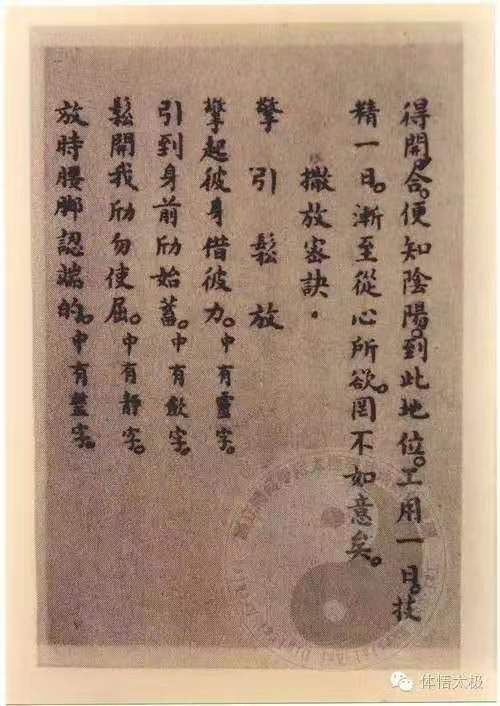 得開合。便知陰陽。到此地位。工用一日。技
精一日。漸至從心所欲。罔不如意矣。
撒放審訣。
擎引鬆放
擎起彼身借彼力。中有靈字。
引到身前劤始蓄。中有歛字。
鬆開我劤勿使屈。中有靜字。
放時腰脚認端的。中有整字。
体悟太极